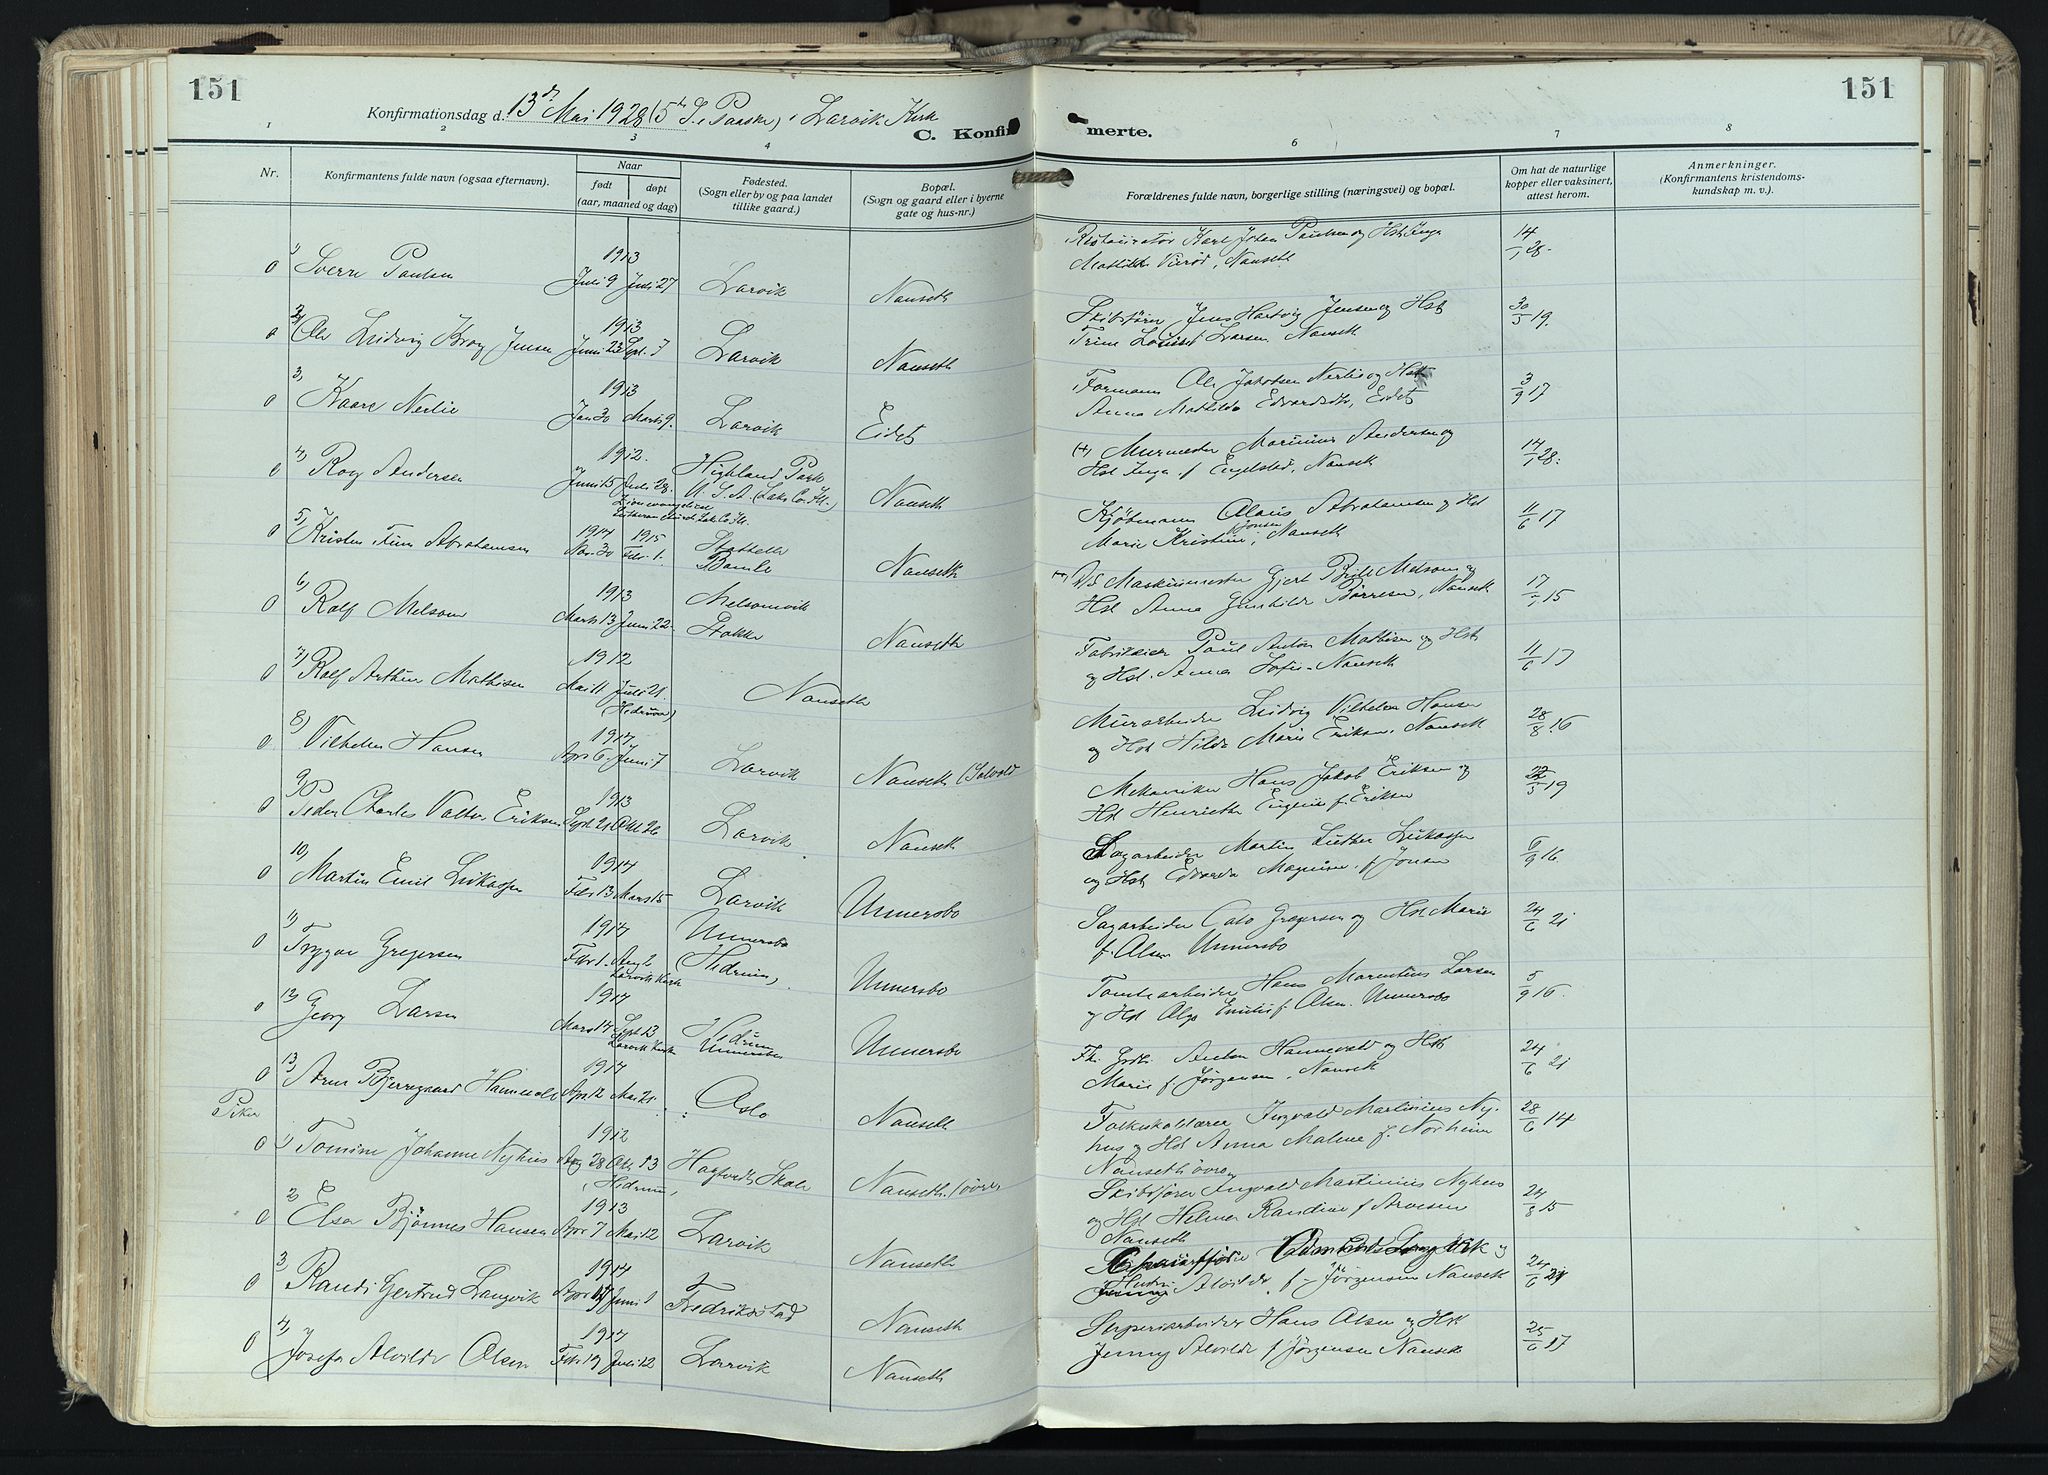 151
151
Konfirmationsdag d. 13de Mai 1928 (5te S. Paaske) i Larvik Kirk
C. Konfirmerte.
1 2 3 4 6 7 8
Nr.
Konfirmantens fulde navn (ogsaa efternavn).
Naar
født døpt
(aar, maaned og dag)
Fødested.
(Sogn eller by og paa landet
tillike gaard.)
Bopæl.
(Sogn og gaard eller i byerne
gate og hus-nr.)
Forældrenes fulde navn, borgerlige stilling (næringsvei) og bopæl.
Om hat de naturlige
kopper eller vaksinert,
attest herom.
Anmerkninger.
(Konfirmantens kristendoms-
kundskap m. v.).
1913
0 1) Sverre Paulsen Juli 9 Juli 27 Larvik Nanseth
Restauratør Karl Johan Paulsen og Hst Inga
Mathilde Vierød, Nanseth
14/1 28.
1913
0 2) Ole Ludvig Krog Jensen Juni 23 Sept. 7 Larvik Nanseth
Skibsfører Jens Hartvig Jensen og Hst
Trine Louise Larsen Nanseth
30/5 19.
1913
0 3) Kaare Nerlie Jan 30 Marts 9. Larvik Eidet
Formann Ole Jakobsen Nerlie og Hst
Anna Mathilde Edvardsdtr, Eidet
3/9 17
1912.
0 4) Roy Andersen Juni 15 Juli 28. Highland Park
U. S. A. (Lake Co. Ill.) Nanseth
Zion evangelical
Lutheran church Lake Co. Ill.
(+) Murmester Marinius Andersen og
Hst Inga f. Engelstad, Nanseth
14/1 28.
1914 1915
0 5) Kristen Tum Abrahamsen Nov. 30 Febr. 1. Stathelle
Bamle Nanseth
Kjøbmann Olaus Abrahamsen og Hst
Marie Kristine Jonsen, Nanseth
11/6 17
1913
0 6) Rolf Melsom Marts 13 Juni 22. Melsomvik
Stokke Nanseth
D/S Maskinmester Gjert Brill Melsom og
Hst Anna Gunhilde Børresen, Nanseth
17/7 15
1912
0 7) Rolf Arthur Mathisen Mai 11 Juli 21. Nanseth
(Hedrum)
Fabrikeier Paul Anton Mathisen og Hst
og Hst. Anna Sofie - Nanseth
11/6 17
1914
0 8) Vilhelm Hansen Apr 6. Juni 7 Larvik Nanseth (Solvold
Murarbeider Ludvig Vilhelm Hansen
og Hst Hilda Marie Eriksen, Nanseth
28/8 16
1913
0 9) Peder Charles Valter Eriksen Sept 21 Okt 26 Larvik Nanseth
Mekaniker Hans Jakob Eriksen og
Hst Henriette Eugenie f. Eriksen
22/5 19
1914
0 10) Martin Emil Lukassen Febr 13 Mars 15 Larvik Unnersbo
Sagarbeider Martin Luther Lukassen
og Hst Edvarda Magnine f. Jonsen
6/9 16.
1914
0 11) Trygve Gregersen Febr 1. Aug 2 Unnersbo
(Hedrum) Unnersbo
Larvik Kirk
Sagarbeider Carlo Gregersen og Hst Marie
f. Olsen Unnersbo
24/6 21
1914
0 12) Georg Larsen Mars 14 Sept 13 Hedrum
Unnersbo Unnersbo
Larvik Kirk
Tomtearbeider Hans Marentius Larsen
og Hst Olga Emilie f. Olsen. Unnersbo
5/9 16.
1914
0 13) Arne Bjerregaard Hannevold Apr 12 Mai 21. Oslo Nanseth
Fh. Anton Hannevold og Hst
Marie f. Jørgensen, Nanseth
24/6 21
Piker
1912
0 1) Tomine Johanne Nyhus Aug 28 Okt 13 Hagtvedt Skole Nanseth (øvre
(Hedrum)
Folkeskolelærer Ingvald Martinius Ny-
hus og Hst Anna Malene f. Norheim
Nanseth øvre
28/6 14
1913
0 2 Elsa Bjønnes Hansen Apr 7 Mai 12 Larvik Nanseth
Skibsfører Ingvald Martinius
og Hst Helma Randine f Arvesen
Nanseth
24/8 15
1914
0 3 Randi Gertrud Langvik Apr 17 Juni 1 Fredrikstad Nanseth
og
Alvilde f. Jørgensen Nanseth
24/6 21
1914
0 4) Josefa Alvilde Olsen Febr 19 Juli 12 Larvik Nanseth
Hans Olsen og Hst
Jenny Alvilde f Jørgensen Nanseth
25/6 17